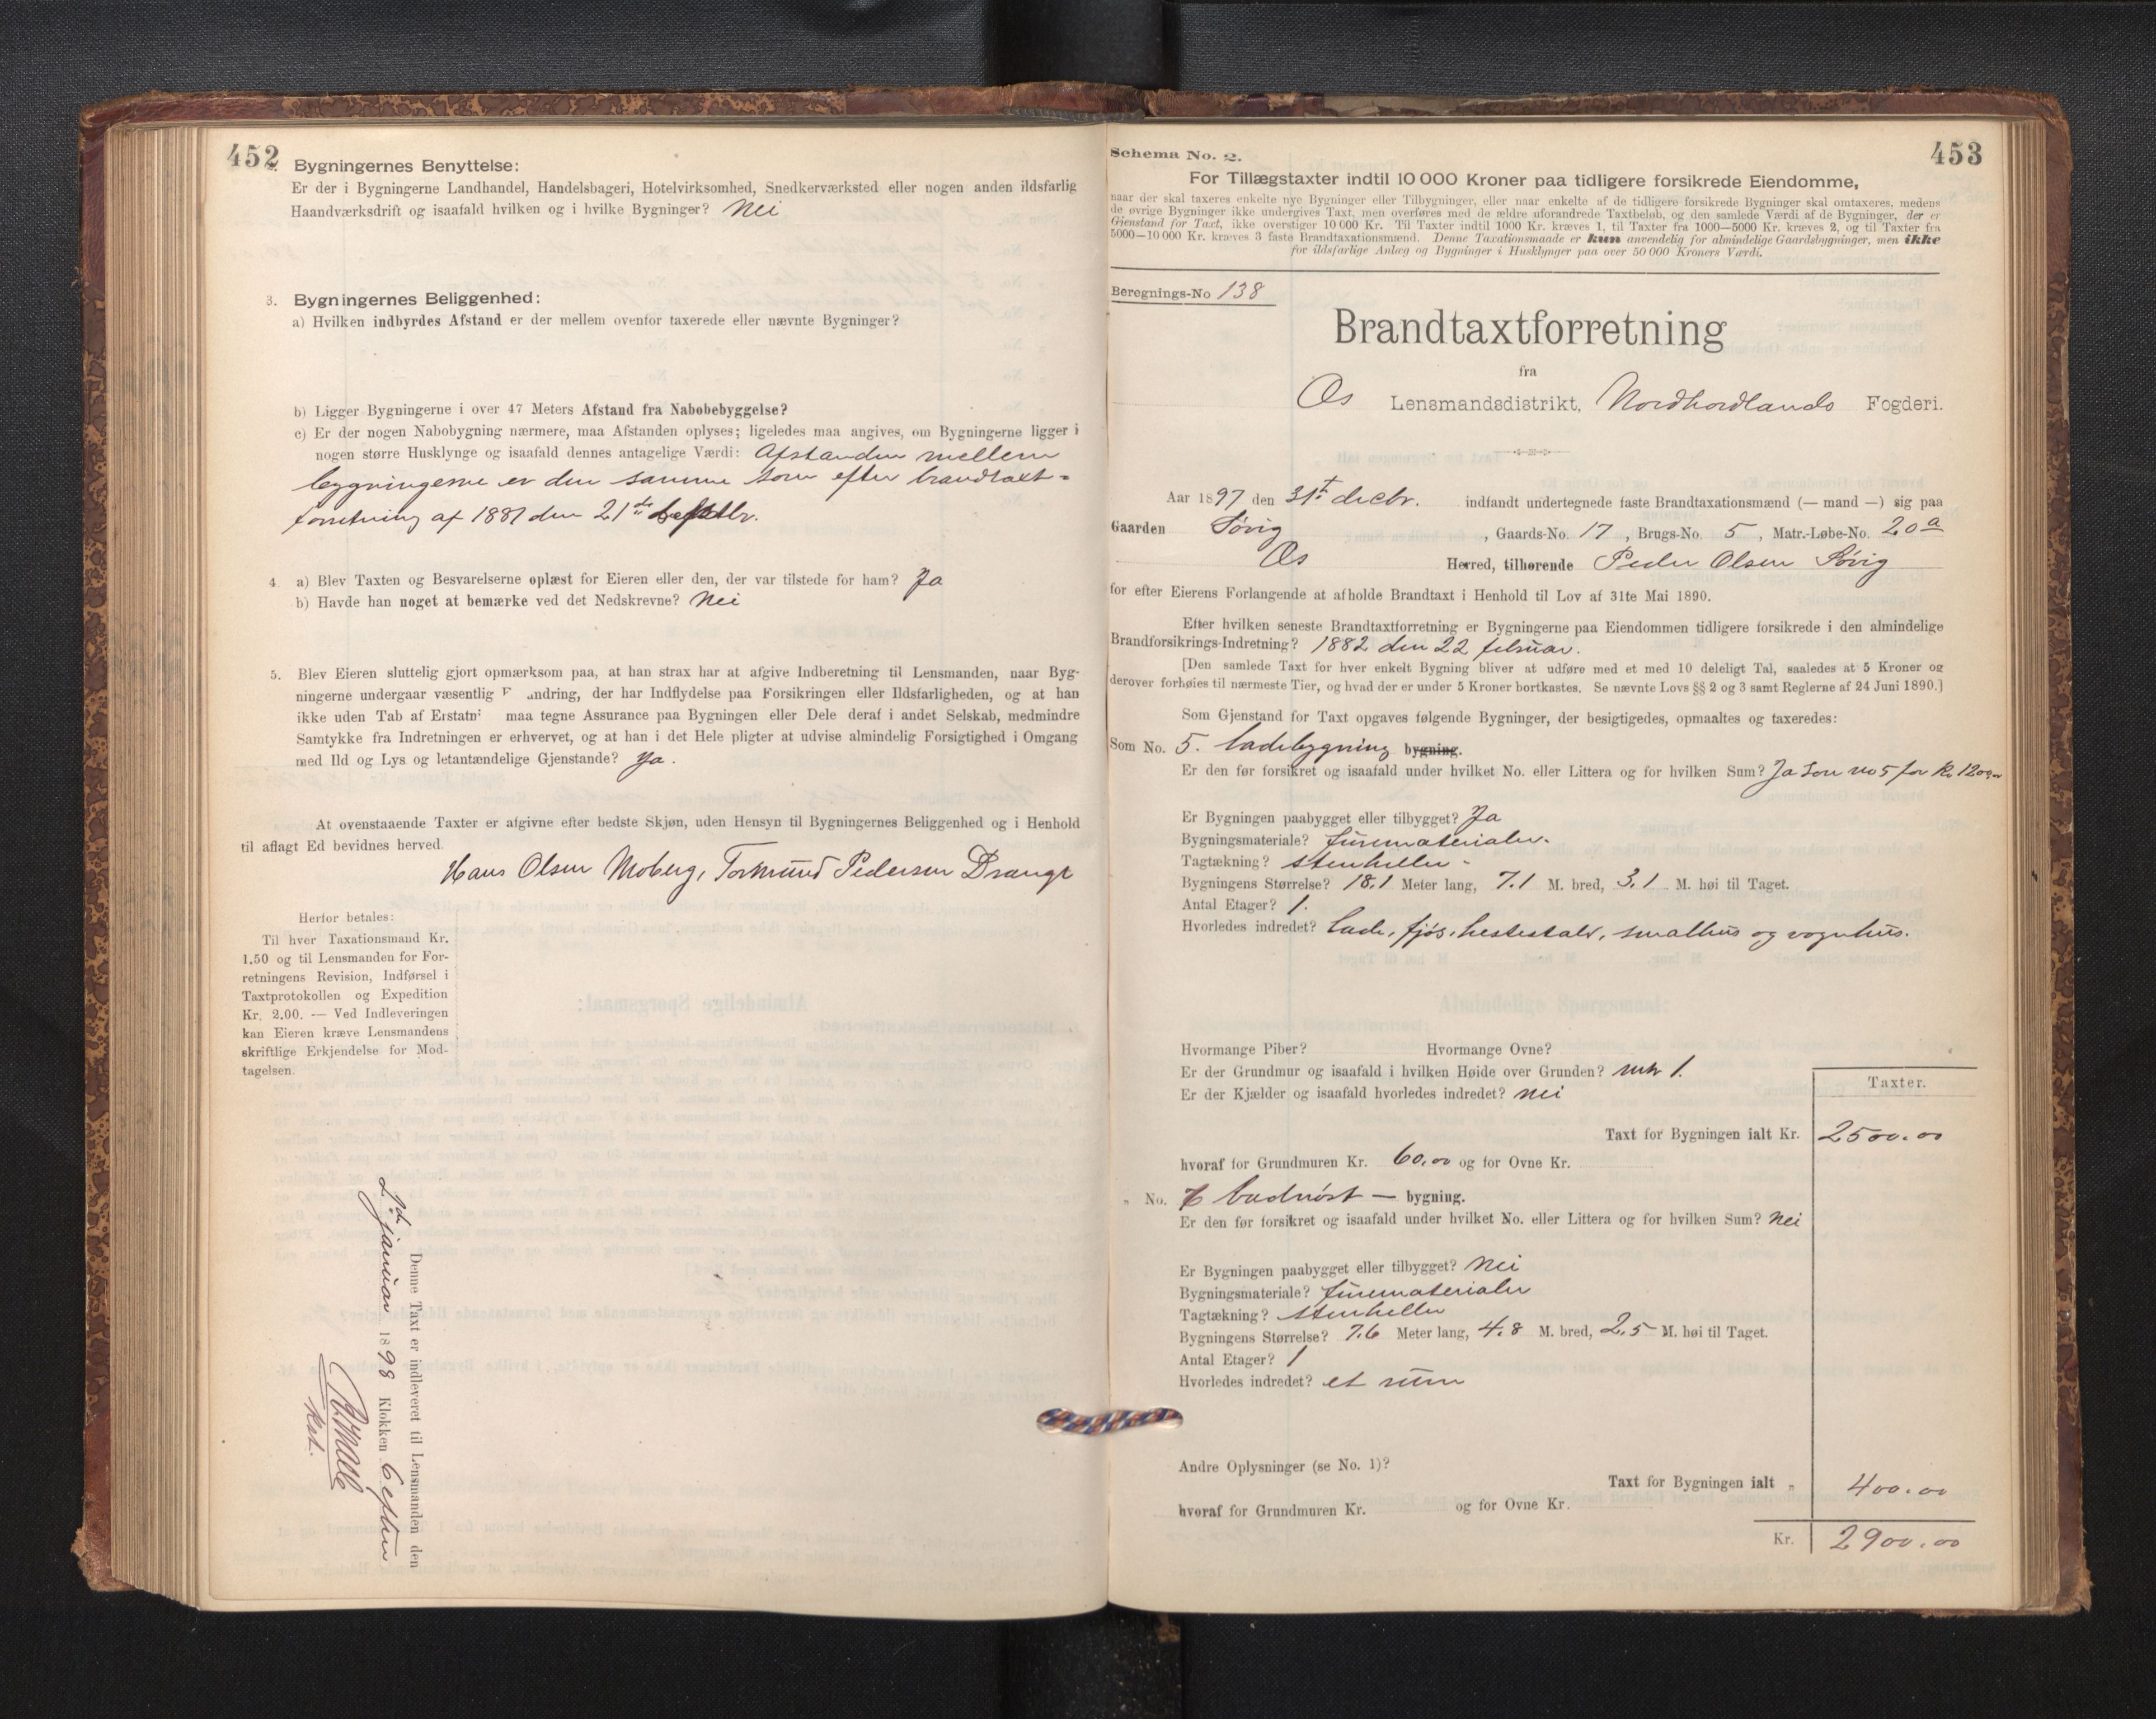 452
Bygningernes Benyttelse:
Er der i Bygningerne Landhandel, Handelsbageri, Hotelvirksomhed, Snedkerværksted eller nogen anden ildsfarlig
Haandværksdrift og isaafald hvilken og i hvilke Bygninger? Nei
3. Bygningernes Beliggenhed:
a) Hvilken indbyrdes Afstand er der mellem ovenfor taxerede eller nævnte Bygninger?
b) Ligger Bygningerne i over 47 Meters Afstand fra Nabobebyggelse?
c) Er der nogen Nabobygning nærmere, maa Afstanden oplyses; ligeledes maa angives, om Bygningerne ligger i
nogen større Husklynge og isaafald dennes antagelige Værdi: Afstanden mellem
bygningerne er den samme som efter brandtaxt-
forretning af 1881 den 21de septbr.
4. a) Blev Taxten og Besvarelserne oplæst for Eieren eller den, der var tilstede for ham? Ja
b) Havde han noget at bemærke ved det Nedskrevne? Nei
5. Blev Eieren sluttelig gjort opmærksom paa, at han strax har at afgive Indberetning til Lensmanden, naar Byg-
ningerne undergaar væsentlig F andring, der har Indflydelse paa Forsikringen eller Ildsfarligheden, og at han
ikke uden Tab af Erstatn maa tegne Assurance paa Bygningen eller Dele deraf i andet Selskab, medmindre
Samtykke fra Indretningen er erhvervet, og at han i det Hele pligter at udvise almindelig Forsigtighed i Omgang
med Ild og Lys og letantændelige Gjenstande? Ja.
At ovenstaaende Taxter er afgivne efter bedste Skjøn, uden Hensyn til Bygningernes Beliggenhed og i Henhold
til aflagt Ed bevidnes herved.
Hans Olsen Moberg, Tormund Pedersen Drange
Herfor betales:
Til hver Taxationsmand Kr.
1.50 og til Lensmanden for For-
retningens Revision, Indførsel i
Taxtprotokollen og Expedition
Kr. 2.00. — Ved Indleveringen
kan Eieren kræve Lensmandens
skriftlige Erkjendelse for Mod-
tagelsen.
Denne Taxt er indleveret til Lensmanden den
2d januar 1898 Klokken 6 efter
kst.
453
Schema No. 2.
For Tillægstaxter indtil 10 000 Kroner paa tidligere forsikrede Eiendomme,
naar der skal taxeres enkelte nye Bygninger eller Tilbygninger, eller naar enkelte af de tidligere forsikrede Bygninger skal omtaxeres, medens
de øvrige Bygninger ikke undergives Taxt, men overføres med de ældre uforandrede Taxtbeløb, og den samlede Værdi af de Bygninger, der er
Gjenstand for Taxt, ikke overstiger 10 000 Kr. Til Taxter indtil 1000 Kr. kræves 1, til Taxter fra 1000—5000 Kr. kræves 2, og til Taxter fra
5000—10 000 Kr. kræves 3 faste Brandtaxationsmænd. Denne Taxationsmaade er kun anvendelig for almindelige Gaardsbygninger, men ikke
for ildsfarlige Anlæg og Bygninger i Husklynger paa over 50 000 Kroners Værdi.
Beregnings-No 138
Brandtaxtforretning
fra
Os Lensmandsdistrikt, Nordhordlands Fogderi.
Aar 1897 den 31t decbr. indfandt undertegnede faste Brandtaxationsmænd (— mand —) sig paa
Gaarden Søvig, Gaards-No. 17, Brugs-No. 5, Matr.-Løbe-No. 20a
Os Herred, tilhørende Peder Olsen Søvig
for efter Eierens Forlangende at afholde Brandtaxt i Henhold til Lov af 31te Mai 1890.
Efter hvilken seneste Brandtaxtforretning er Bygningerne paa Eiendommen tidligere forsikrede i den almindelige
Brandforsikrings-Indretning? 1882 den 22 februar.
[Den samlede Taxt for hver enkelt Bygning bliver at udføre med et med 10 deleligt Tal, saaledes at 5 Kroner og
derover forhøies til nærmeste Tier, og hvad der er under 5 Kroner bortkastes. Se nævnte Lovs §§ 2 og 3 samt Reglerne af 24 Juni 1890.]
Som Gjenstand for Taxt opgaves følgende Bygninger, der besigtigedes, opmaaltes og taxeredes:
Som No. 5. ladebygning bygning.
Er den før forsikret og isaafald under hvilket No. eller Littera og for hvilken Sum? Ja som no 5 for Kr. 1200,00
Er Bygningen paabygget eller tilbygget? Ja
Bygningsmateriale? furematerialer.
Tagtækning? stenheller.
Bygningens Størrelse? 18.1 Meter lang, 7.1 M. bred, 3.1 M. høi til Taget.
Antal Etager? 1.
Hvorledes indredet? lade, fjøs, hestestald, smalhus og vognhus.
Hvormange Piber? Hvormange Ovne?
Er der Grundmur og isaafald i hvilken Høide over Grunden? mtr 1.
Er der Kjælder og isaafald hvorledes indredet? nei
Taxter.
Taxt for Bygningen ialt Kr. 2500.00
hvoraf for Grundmuren Kr. 60,00 og for Ovne Kr.
" No. 6 badnøst — bygning.
Er den før forsikret og isaafald under hvilket No. eller Littera og for hvilken Sum? Nei
Er Bygningen paabygget eller tilbygget? Nei
Bygningsmateriale? furematerialer
Tagtækning? stenheller
Bygningens Størrelse? 7.6 Meter lang, 4.8 M. bred, 2.5 M. høi til Taget.
Antal Etager? 1
Hvorledes indredet? et rum
Andre Oplysninger (se No. 1)?
Taxt for Bygningen ialt " 400.00
hvoraf for Grundmuren Kr. og for Ovne Kr.
Kr. 2900.00